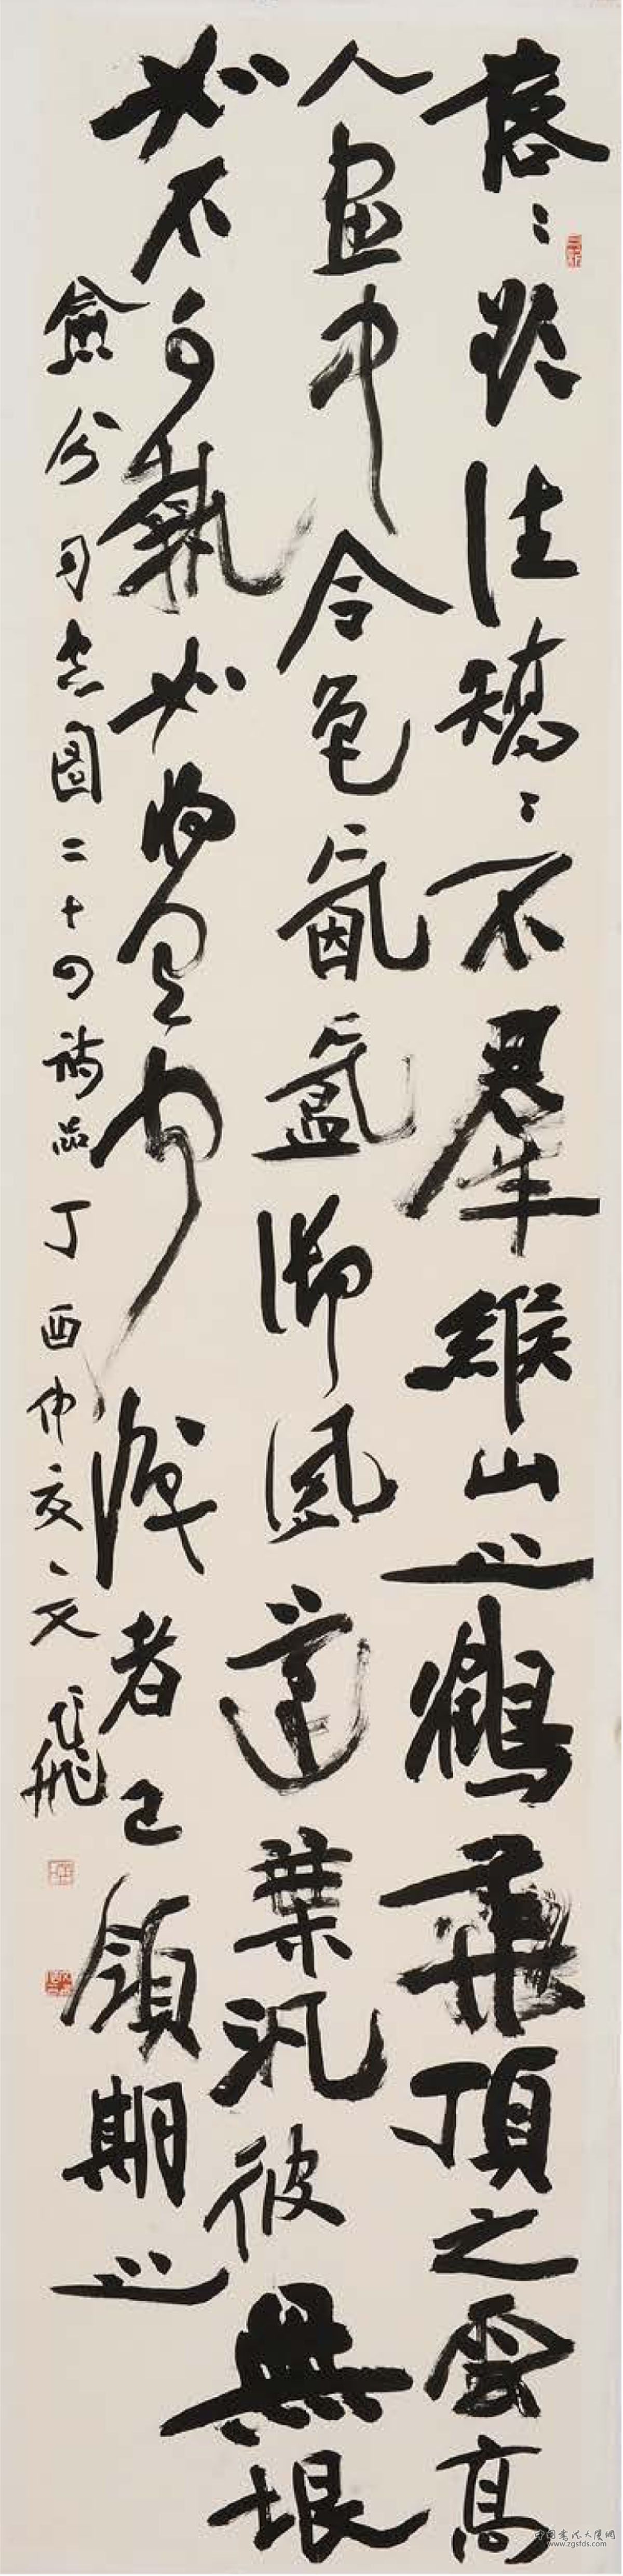 落〻欲往矯〻不羣緱山之鶴華頂之雲高
人畫中令色氤氳御風蓬葉汎彼無垠
如不可執如將有聞識者已領期之
愈分司空圖二十四詩品丁酉仲夏文飛
www.zgsfds.com